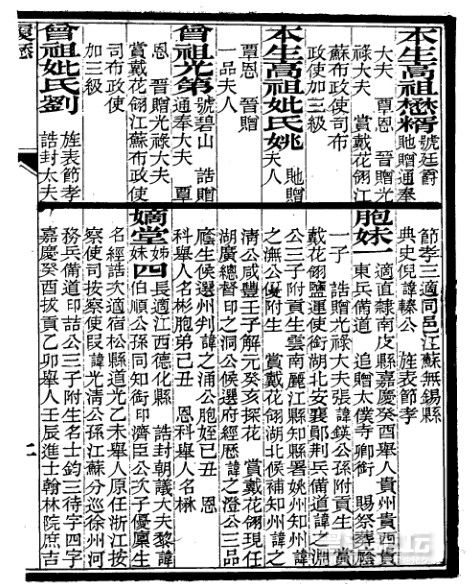 本生高祖懋楈 號廷爵
貤贈通奉
大夫 覃恩 晉贈光
祿大夫 賞戴花翎江
蘇布政使司布
政使加三級
本生高祖妣氏姚 貤贈
夫人
覃恩 晉贈
一品夫人
曾祖光第 號碧山 誥贈
通奉大夫 覃
恩 晉贈光祿大夫
賞戴花翎江蘇布政使
司布政使
加三級
曾祖妣氏劉 旌表節孝
誥封太夫
節孝三適同邑江蘇無錫縣
典史倪諱榛公 旌表節孝
胞妹一 適直隸南皮縣嘉慶癸酉舉人貴州貴西貴
東兵備道 追贈太僕寺卿銜 賜祭葬蔭
一子 誥贈光祿大夫張諱鍈公孫附貢生 賞
戴花翎鹽運使銜湖北安襄鄖荊兵備道諱之淵
公三子附貢生雲南麗江縣知縣署姚州知州諱
之公優附生 賞戴花翎湖北候補知州諱之
清公咸豐壬子解元癸亥探花 賞戴花翎現任
湖廣總督印之洞公候選府經歷諱之澄公三品
廕生候選州判諱之涌公胞姪己丑 恩
科舉人名彬胞弟己丑 恩科舉人名
嫡堂姊妹四 長適江西德化縣 誥封朝議大夫黎諱
伯順公孫同知銜印濟臣公次子優廩生
名經誥次適宿松縣道光乙未舉人原任浙江按
察使司按察使段諱光清公孫江蘇分巡徐州河
務兵備道印喆公三子附生名士鈞三待字四字
嘉慶癸酉拔貢乙卯舉人壬辰進士翰林院庶吉
履歷
二